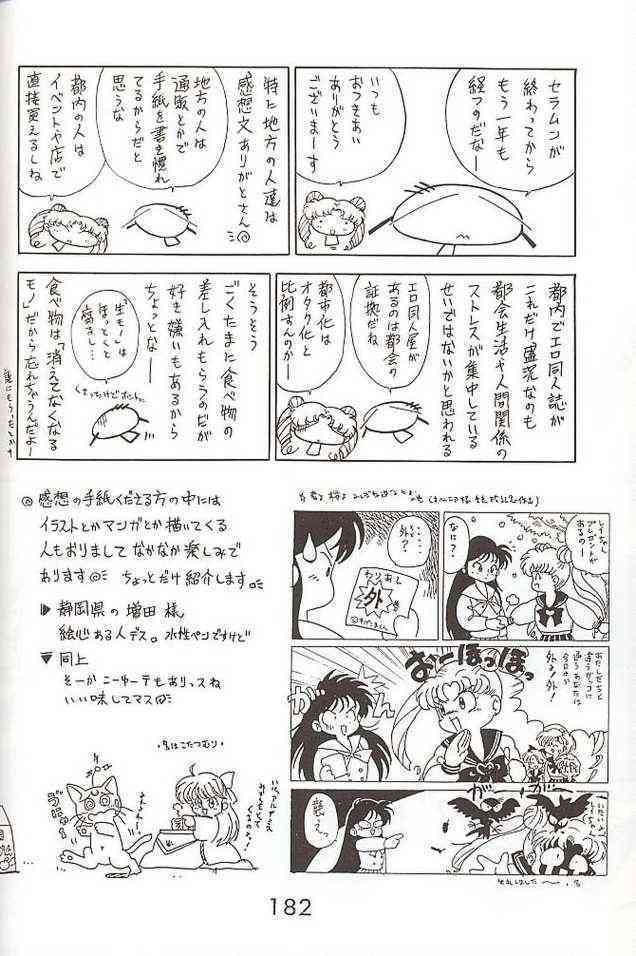 セラムンが
終わってから
もう一年も
経つのだなー
いつも
おつきあい
ありがとう
ございまーす
特に地方の人達は
感想文ありがとさん
地方の人は
通販とかで
手紙を書き慣れ
てるからだと
思うな
都内の人は
イベントや店で
直接買えるしね
都内でエロ同人誌が
これだけ盛況なのも
都会生活や人間関係の
ストレスが集中している
せいではないかと思われる
エロ同人屋が
あるのは都会の
証拠だね
都市化は
オタク化と
比例すんのかー
そうそう
ごくたまに食べ物の
差し入れもらうのだが
好き嫌いもあるから
ちょっとなー
「生モノ」は
ほっとくと
腐るし…
食べ物は「消えてなくなる
モノ」だから忘れちゃうんだよー
◎感想の手紙くださる方の中には
イラストとかマンガとか描いてくる
人もおりましてなかなか楽しみで
あります ちょっとだけ紹介します
▶静岡県の増田様
絵心ある人デス。水性ペンですけど
▼同上
そーかこーゆー手もありっスね
いい味してマス
レイちゃん
プレゼントが
あるのー
なに?
外?
外
おーほっほっ
がーん
182